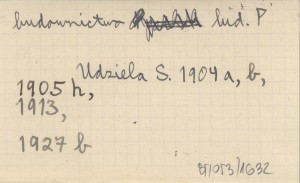 budownictwo lud. P
Udziela S. 1904 a, b,
1905 h,
1913,
1927 b